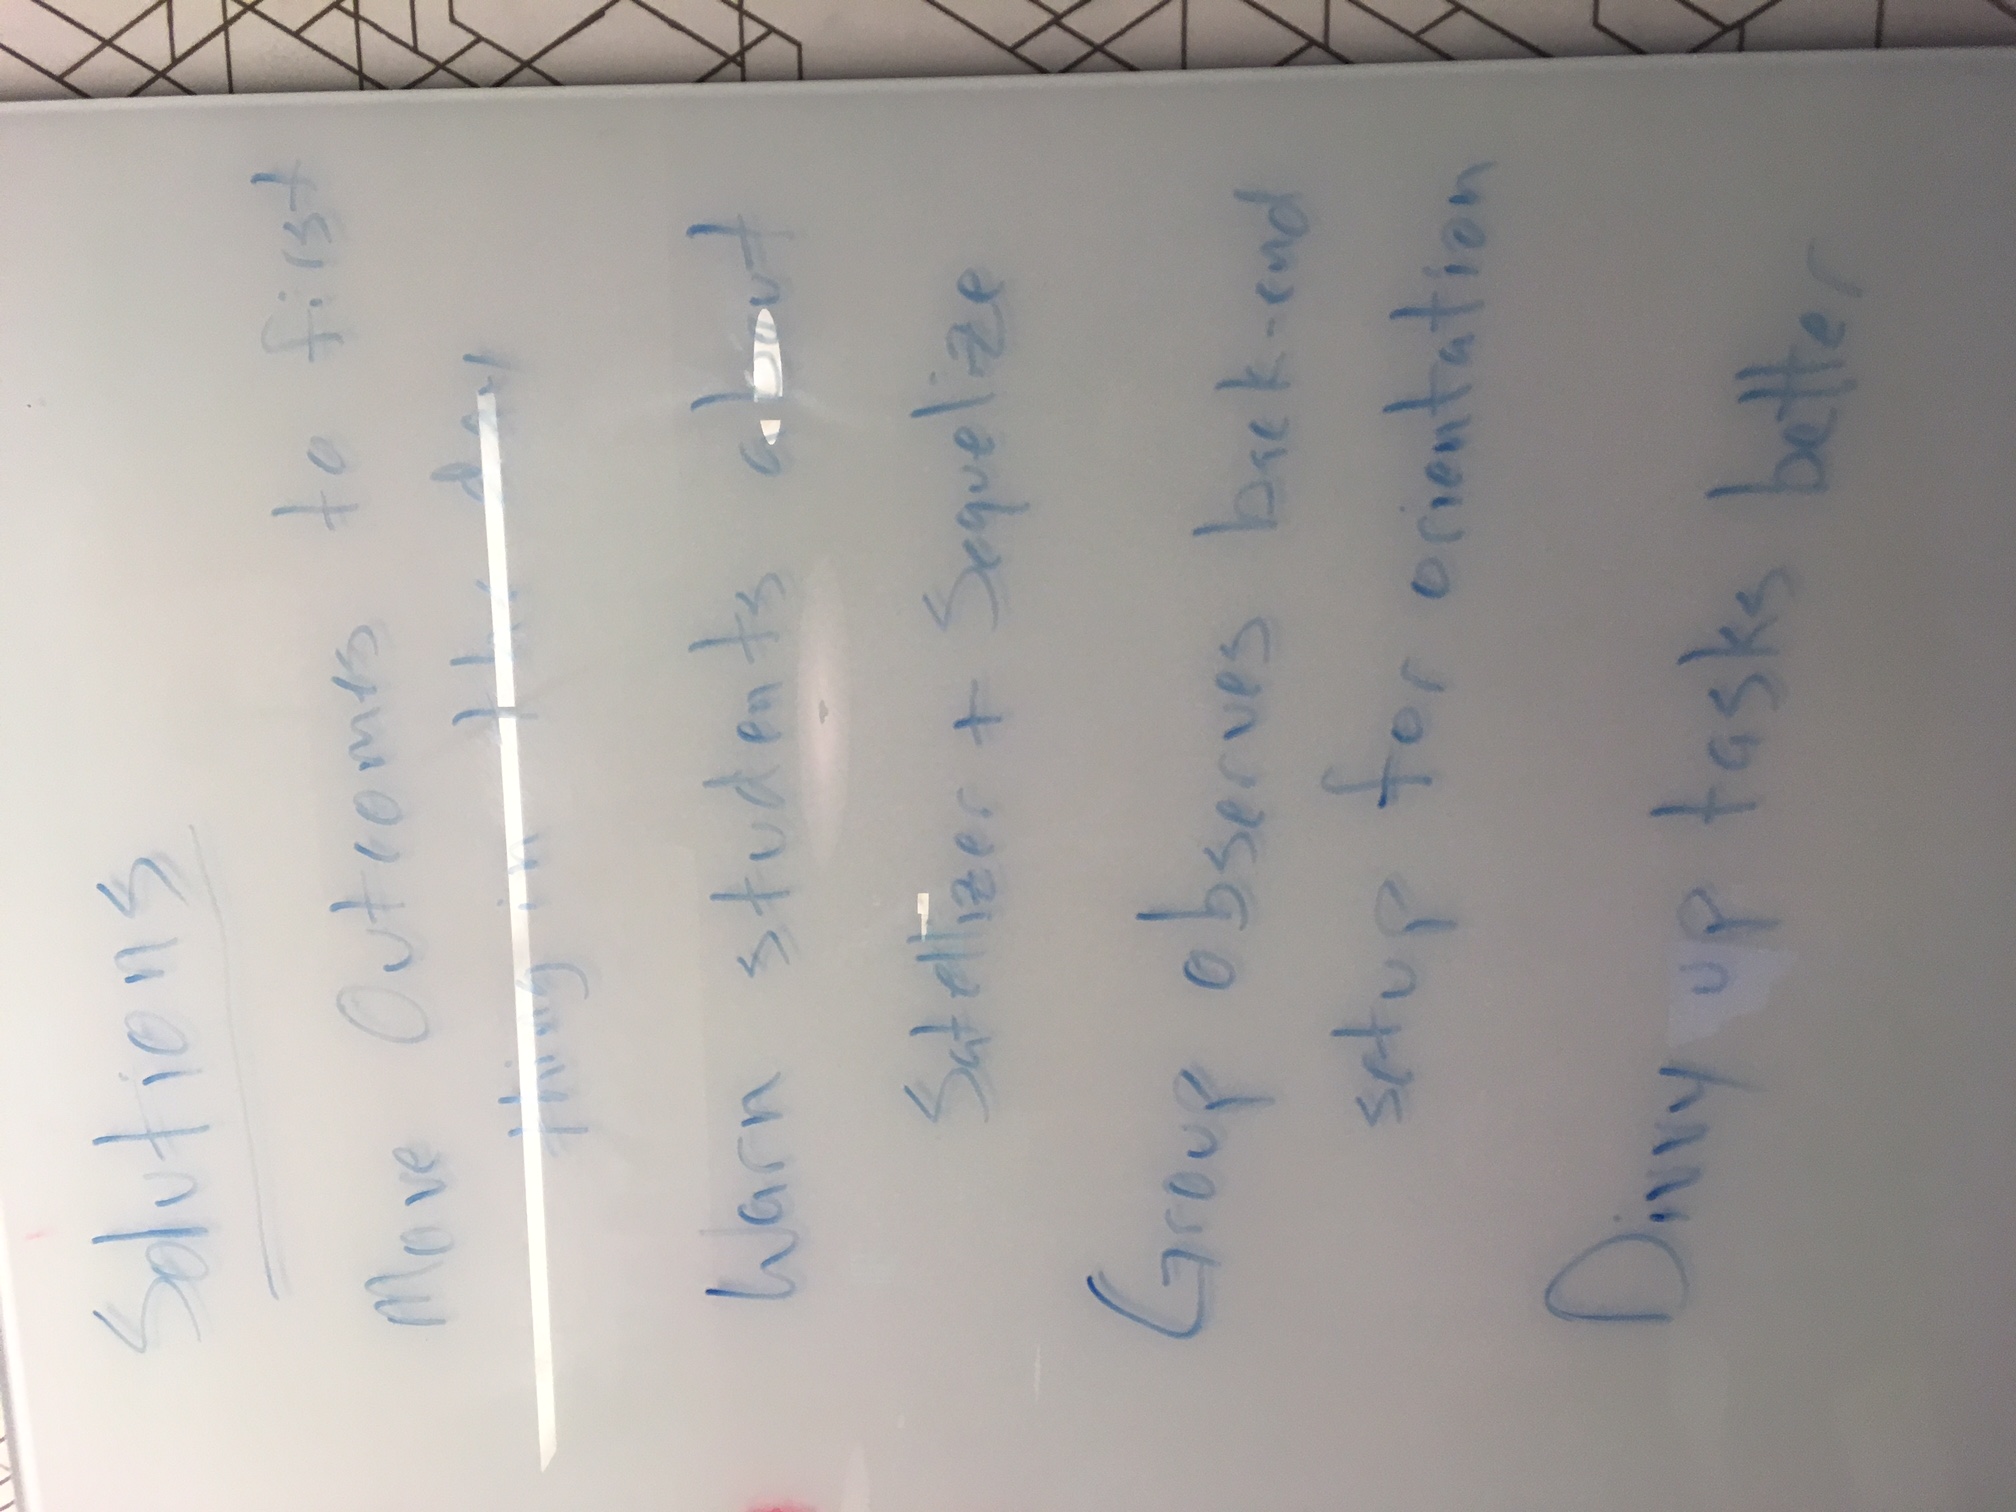 Solutions
Move Outcomes to first
thing in the day
Warn students about
Satellizer + Sequelize
Group observes back-end
setup for orientation
Divvy up tasks better